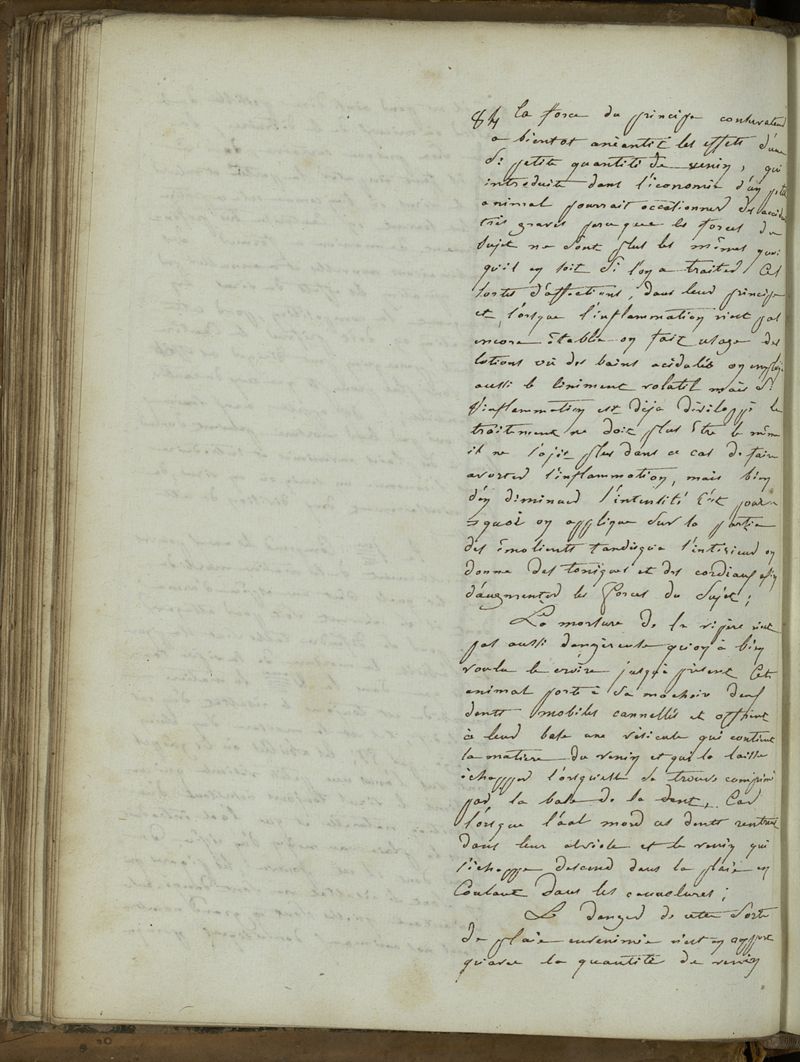 84 la force du principe conservateur
a bientot anéantit les effets d'une
si petite quantité de venin, qui
introduite dans l'économie d'un petit
animal pourrait occationner des accidens
très graves parceque les forces du
sujet ne sont plus les mêmes quoi
qu'il en soit si l'on a traiter ces
sortes d'affections, dans leur principe
et lorsque l'inflammation n'est pas
encore établie on fait usage des
lotions où des bains acidulés on emploi
aussi le liniment volatil mais si
l'inflammation est déja dévelopé le
traitement ne doit plus être le même
il ne s'agit plus dans ce cas de faire
avorter l'inflammation, mais bien
d'en diminuer l'intensité c'est pour
quoi on applique sur la partie
des émolients tandisque l'intérieur on
donne des toniques et des cordiaux afin
d'augmenter les forces du sujet;
La morsure de la vipère n'est
pas aussi dangereuse qu'on a bien
voulu le croire jusqu'a présent Cet
animal porte à sa machoir deux
dents mobiles cannellés et offrant
à leur base une vésicule qui contient
la matière du venin et qui le laisse
échapper lorsquelle se trouve comprimé
par la base de la dent, Car
lorsque l'aal mord ces dents rentrent
dans leur alvéole et le venin qui
s'échappe descend dans la plaie en
Coulant dans les cannelures;
Le danger de cette sorte
de plaie envenimée n'est en apport
qu'avec la quantité de venin